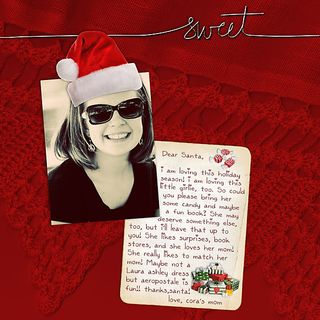 sweet
Dear Santa,
i am loving this holiday
season! i am loving this
little girlie, too. So could
you please bring her
some candy and maybe
a fun book? She may
deserve something else,
too, but i'll leave that up to
you! She likes surprises, book
stores, and she loves her mom!
She really likes to match her
mom! Maybe not a
Laura ashley dress
but aeropostale is
fun!! thanks,santa!
love, cora's mom